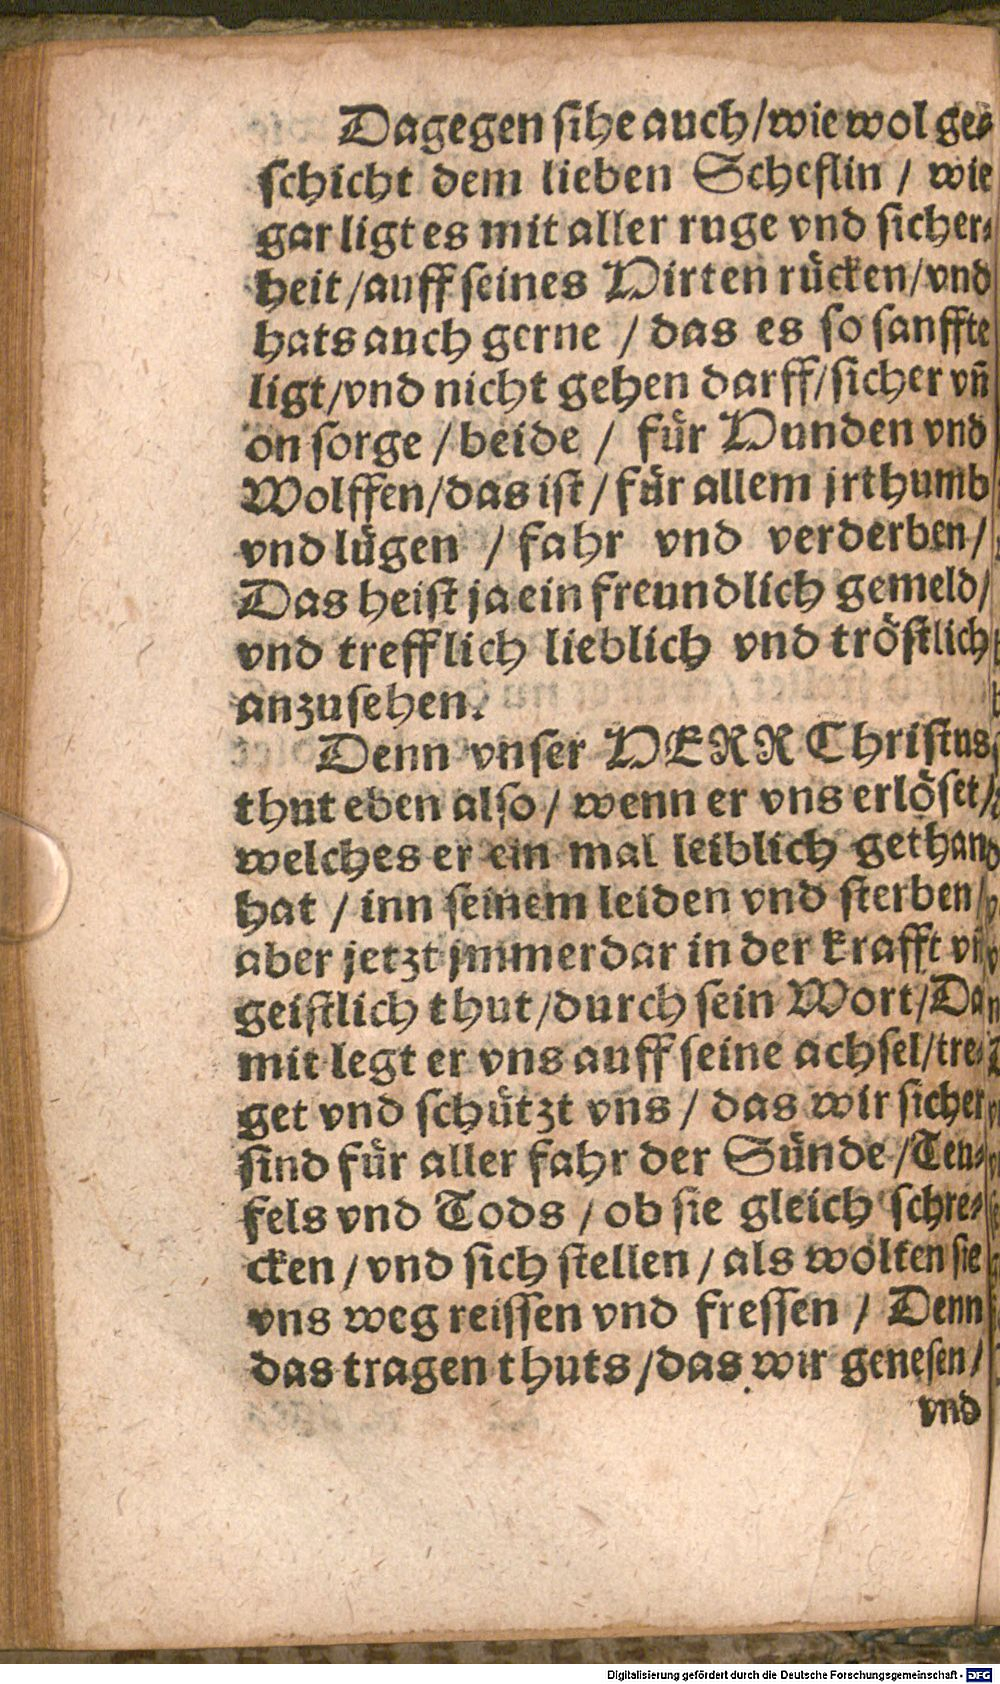 Dagegen sihe auch/wie wol ge-
schicht dem lieben Scheflin / wie
gar ligt es mit aller ruge vnd sicher-
heit /auff seines Hirten rücken/vnd
hats auch gerne / das es so sanffte
ligt/vnd nicht gehen darff/sicher vñ
on sorge /beide / für Hunden vnd
Wolffen/das ist / für allem jrthumb
vnd lügen / fahr vnd verderben/
Das heist ja ein freundlich gemeld/
vnd trefflich lieblich vnd tröstlich
anzusehen.
Denn vnser HERR Christus
thut eben also / wenn er vns erlöset/
welches er ein mal leiblich gethan
hat / inn seinem leiden vnd sterben/
aber jetzt jmmerdar in der krafft vñ
geistlich thut/durch sein Wort/Da
mit legt er vns auff seine achsel/tre-
get vnd schützt vns / das wir sicher
sind für aller fahr der Sünde /Teu-
fels vnd Tods / ob sie gleich schre-
cken /vnd sich stellen / als wolten sie
vns weg reissen vnd fressen / Denn
das tragen thuts /das wir genesen/
vnd
Digitalisierung gefördert durch die Deutsche Forschungsgemeinschaft - DFG